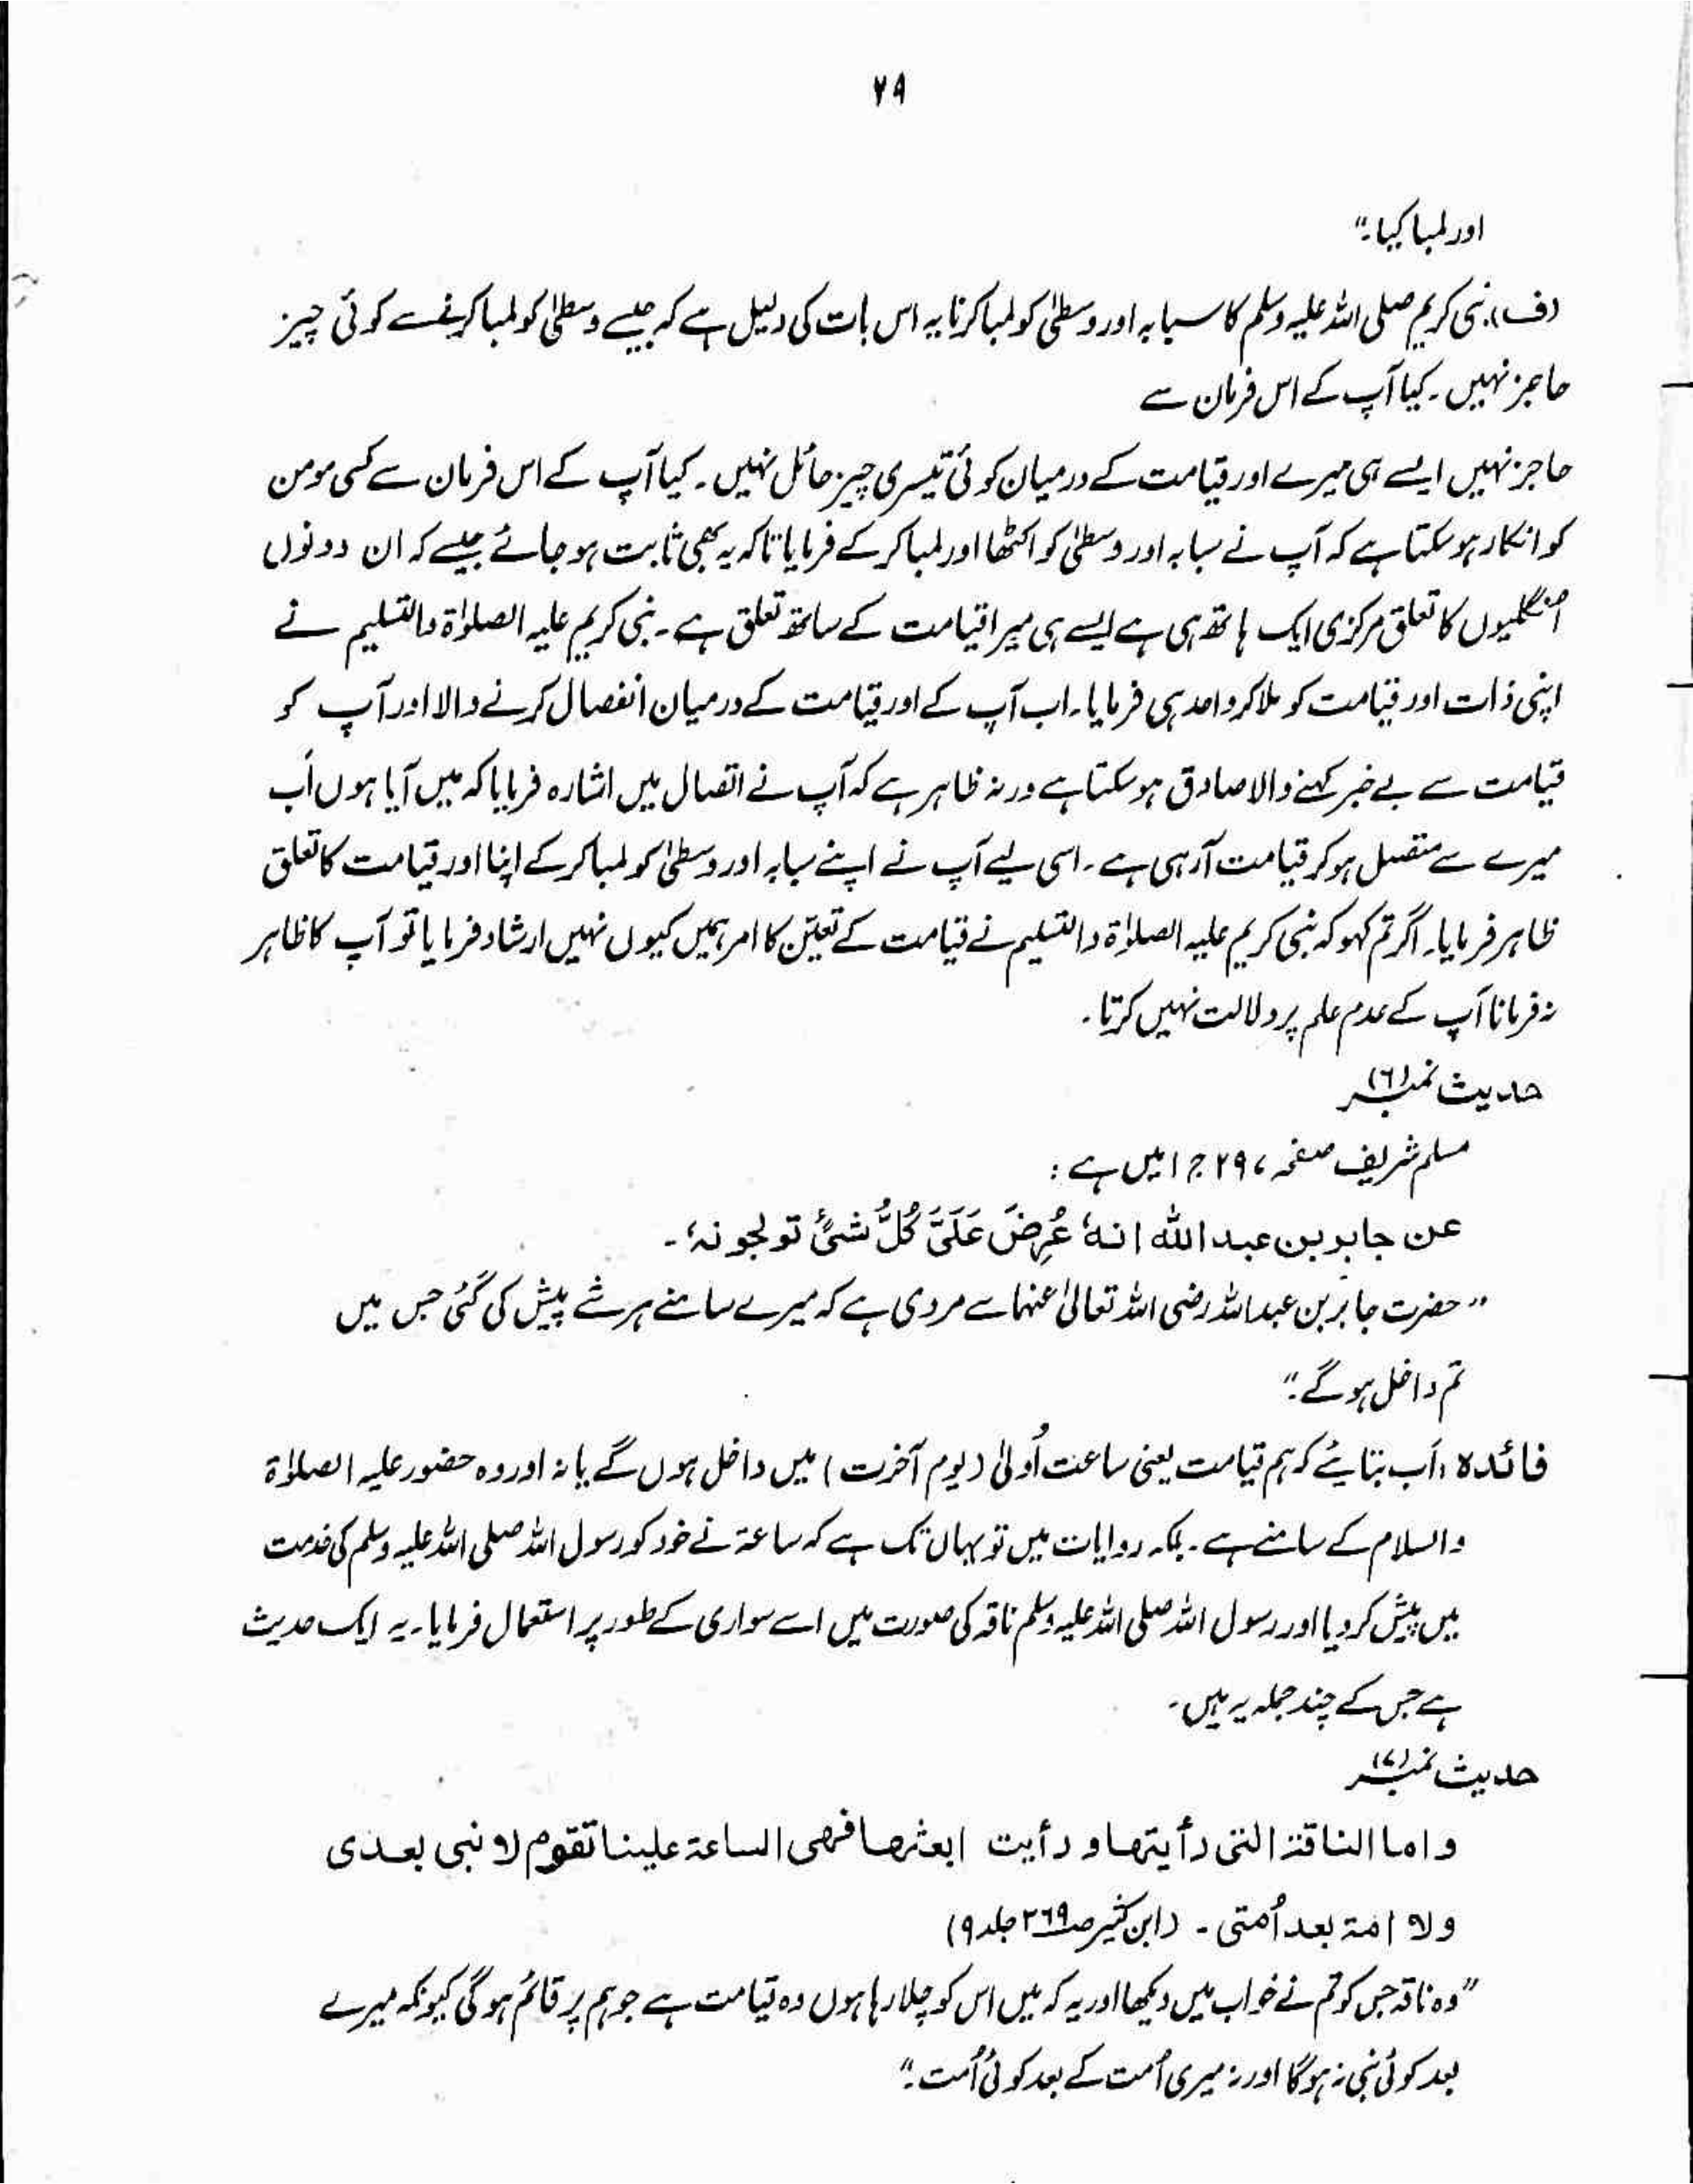 ۲۹
اور لمبا کیا۔"
(ف)، نبی کریم صلی اللہ علیہ وسلم کا سبابہ اور وسطیٰ کو لمبا کرنا یہ اس بات کی دلیل ہے کہ جیسے وسطیٰ کو لمبا کرنے سے کوئی چیز
حاجز نہیں۔ کیا آپ کے اس فرمان سے
حاجز نہیں ایسے ہی میرے اور قیامت کے درمیان کوئی تیسری چیز حائل نہیں۔ کیا آپ کے اس فرمان سے کسی مومن
کو انکار ہو سکتا ہے کہ آپ نے سبابہ اور وسطیٰ کو اکٹھا اور لمبا کر کے فرمایا تاکہ یہ بھی ثابت ہو جائے جیسے کہ ان دونوں
انگلیوں کا تعلق مرکزی ایک ہاتھ ہی ہے ایسے ہی میرا قیامت کے ساتھ تعلق ہے۔ نبی کریم علیہ الصلوٰۃ والتسلیم نے
اپنی ذات اور قیامت کو ملا کر واحد ہی فرمایا۔ اب آپ کے اور قیامت کے درمیان انفصال کرنے والا اور آپ کو
قیامت سے بے خبر کہنے والا صادق ہو سکتا ہے ورنہ ظاہر ہے کہ آپ نے اتصال میں اشارہ فرمایا کہ میں آیا ہوں اَب
میرے سے متصل ہو کر قیامت آ رہی ہے۔ اسی لیے آپ نے اپنے سبابہ اور وسطیٰ کو لمبا کر کے اپنا اور قیامت کا تعلق
ظاہر فرمایا۔ اگر تم کہو کہ نبی کریم علیہ الصلوٰۃ والتسلیم نے قیامت کے تعیّن کا امر ہمیں کیوں نہیں ارشاد فرمایا تو آپ کا ظاہر
نہ فرمانا آپ کے عدم علم پر دلالت نہیں کرتا۔
حدیث نمبر (۶)
مسلم شریف صفحہ ۲۹۷ ج ۱ میں ہے :
عن جابر بن عبد اللہ انہٗ عُرِضَ عَلَیَّ کُلُّ شیْءٍ تولجونہٗ۔
"حضرت جابر بن عبد اللہ رضی اللہ تعالیٰ عنہما سے مروی ہے کہ میرے سامنے ہر شے پیش کی گئی جس میں
تم داخل ہو گے۔"
فائدہ، اَب بتایئے کہ ہم قیامت یعنی ساعت اُولیٰ (یوم آخرت) میں داخل ہوں گے یا نہ اور وہ حضور علیہ الصلوٰۃ
والسلام کے سامنے ہے۔ بلکہ روایات میں تو یہاں تک ہے کہ ساعۃ نے خود کو رسول اللہ صلی اللہ علیہ وسلم کی خدمت
میں پیش کر دیا اور رسول اللہ صلی اللہ علیہ وسلم ناقہ کی صورت میں اسے سواری کے طور پر استعمال فرمایا۔ یہ ایک حدیث
ہے جس کے چند جملہ یہ ہیں۔
حدیث نمبر (۷)
واما الناقۃ التی رأیتھا و رأیت ابعثھا فھی الساعۃ علینا تقوم لا نبی بعدی
ولا امۃ بعد اُمتی۔ (ابن کثیر ص ۲۶۹ جلد ۹)
"وہ ناقہ جس کو تم نے خواب میں دیکھا اور یہ کہ میں اس کو چلا رہا ہوں وہ قیامت ہے جو ہم پر قائم ہو گی کیونکہ میرے
بعد کوئی نبی نہ ہوگا اور نہ میری اُمت کے بعد کوئی اُمت۔"